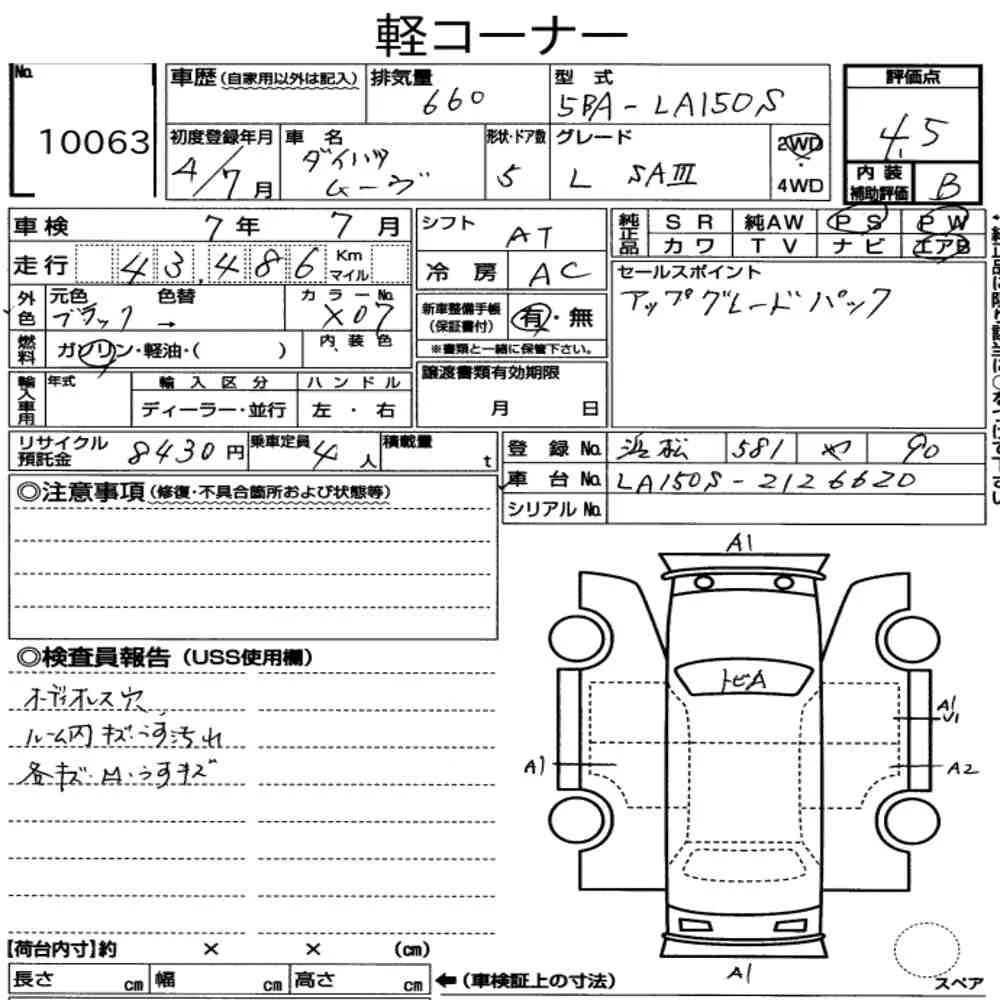 軽コーナー
No.
10063
車歴(自家用以外は記入)
排気量
660
型式
5BA-LA150S
評価点
4.5
初度登録年月
4/7月
車名
ダイハツ
ムーヴ
形状・ドア数
5
グレード
L SAⅢ
2WD
4WD
内装
補助評価
B
車検 7年 7月
シフト
AT
純正品
SR 純AW PS PW
カワ TV ナビ エアB
走行 43,486 Km
マイル
冷房 AC
セールスポイント
アップグレードパック
外色
元色 色替
ブラック →
カラーNo.
X07
新車整備手帳
(保証書付)
有・無
※書類と一緒に保管下さい。
燃料
ガソリン・軽油・( )
内装色
譲渡書類有効期限
月 日
輸入車用
年式
輸入区分
ハンドル
ディーラー・並行
左・右
リサイクル
預託金
8430円
乗車定員
4人
積載量
t
登録No. 浜松 581 や 90
車台No. LA150S-2126620
シリアルNo.
◎注意事項(修復・不具合箇所および状態等)
◎検査員報告(USS使用欄)
オーディオレス穴
ルーム内キズ・うす汚れ
各キズ・M・うすキズ
A1
トビA
A1
U1
A1
A2
A1
【荷台内寸】約 × × (cm)
長さ cm 幅 cm 高さ cm
←(車検証上の寸法)
スペア